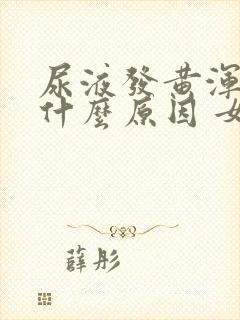 尿液發黃渾
什麼原因 女
薛彤